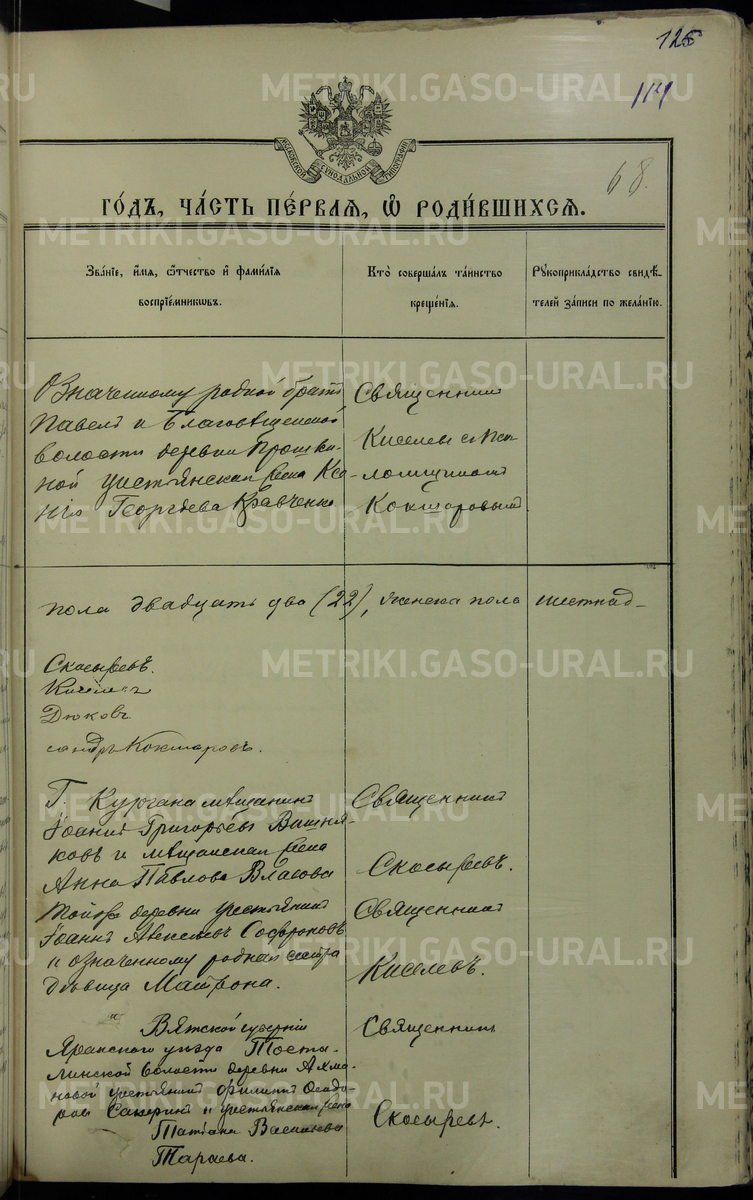 125
114
68.
МОСКОВСКОЙ СѴНОДАЛЬНОЙ ТИПОГРАФІИ
ГО́ДЪ, ЧА́СТЬ ПЕ́РВАЯ, Ѡ҆ РОДИ́ВШИХСЯ.
Зва́нїе, и҆́мѧ, ѻ҆́тчество и҆ фами́лїѧ
воспрїе́мникѡвъ.
Кто̀ соверша́лъ та́инство
креще́нїѧ.
Рꙋкоприкла́дство свидѣ́-
телей за́писи по жела́нїю.
Означенному родной братъ
Павелъ и Благовѣщенской
волости деревни
ной крестьянская жена Ксе-
нія Георгіева Кравченко
Священникъ
Киселевъ с пса-
ломщикомъ
Кокшаровымъ
пола двадцать два (22), женска пола шестнад-
Скосыревъ.
Киселевъ
Дюковъ
сандръ Кокшаровъ.
Г. Кургана мѣщанинъ
Іоаннъ Григорьевъ Вишня-
ковъ и мѣщанская жена
Анна Павлова Власова
Священникъ
Скосыревъ.
Той же деревни крестьянинъ
Іоаннъ Алексѣевъ Софроновъ
и означенному родная сестра
дѣвица Матрона.
Священникъ
Киселевъ.
Вятской губерніи
Яранскаго уѣзда
линской волости деревни Ахма-
новой крестьянинъ Филиппъ Ѳеодо-
ровъ и крестьянская жена
Татіана Васильева
Тараева.
Священникъ
Скосыревъ.
METRIKI.GASO-URAL.RU